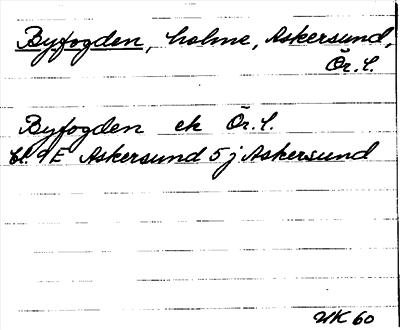 Byfogden, holme, Askersund,
Ör. L.
Byfogden ek Ör. L.
bl. 9E Askersund 5 j Askersund
UK 60